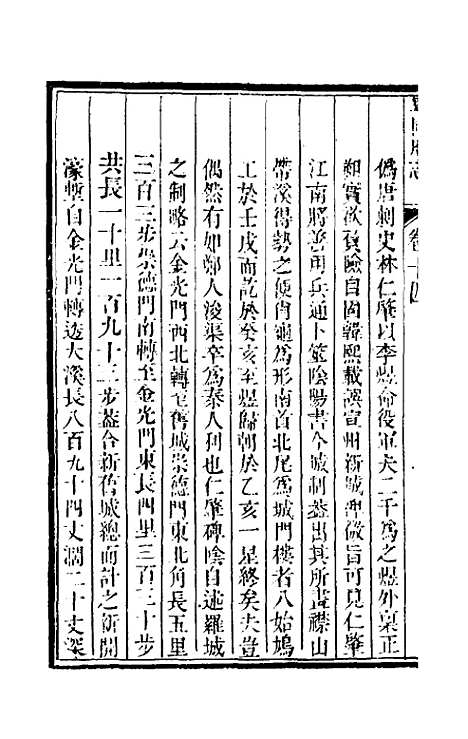 國府志 卷十四
偽唐刺史林仁肇以李煜命役軍夫二千為之煜外稟正
朔實欲負險自固韓熙載譔宣州新城碑微旨可見仁肇
江南將善用兵通卜筮陰陽書今城制葢出其所畫襟山
帶溪得勢之便肖龜為形南首北尾為城門樓者八始鳩
工於壬戌而訖於癸亥至煜歸朝於乙亥一星終矣夫豈
偶然有如鄭人浚渠卒為秦人利也仁肇碑陰自述羅城
之制略云金光門西北轉至舊城崇德門東北角長五里
三百三步崇德門南轉至金光門東長四里三百三十步
共長一十里一百九十三步葢合新舊城總而計之新開
濠塹自金光門轉遶大溪長八百九十四丈濶二十丈深